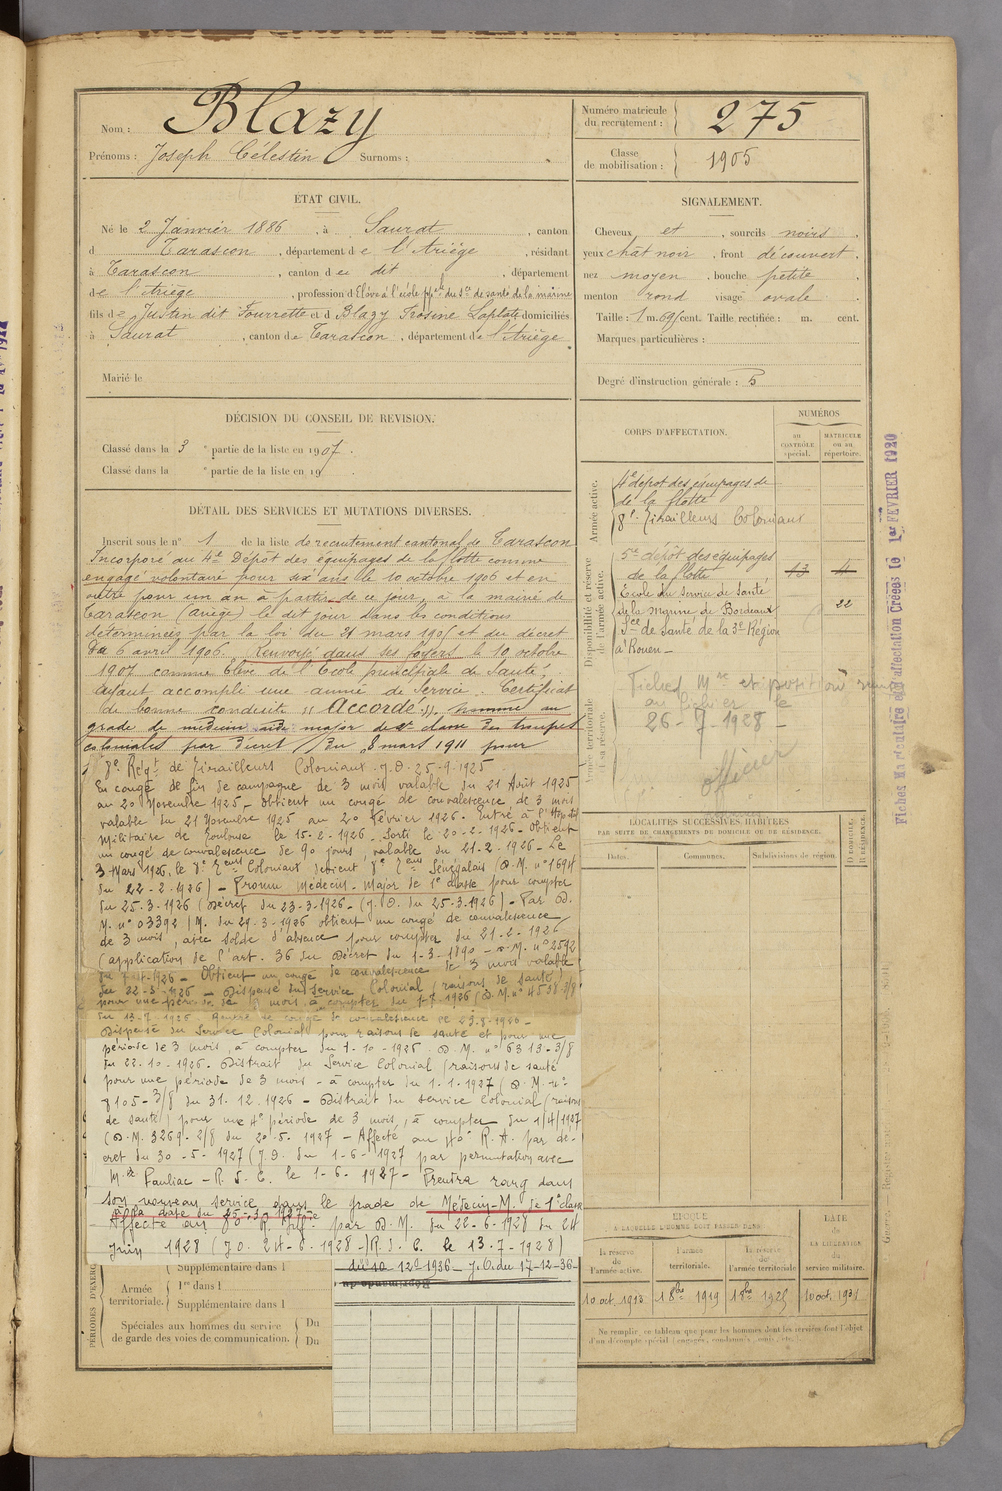 Nom : Blazy
Prénoms : Joseph Célestin Surnoms :
Numéro matricule du recrutement : 275
Classe de mobilisation : 1905
ÉTAT CIVIL.
Né le 2 Janvier 1886, à Saurat, canton
d Tarascon, département de l'Ariège, résidant
à Tarascon, canton d dit, département
de l'Ariège, profession d Elève à l'école ppale du Sce de santé de la marine
fils de Justin dit Fourrette et d Blazy Frosine Laplote domiciliés
à Saurat, canton de Tarascon, département de l'Ariège
Marié le
SIGNALEMENT.
Cheveux et, sourcils noirs,
yeux chât noir, front découvert,
nez moyen, bouche petite,
menton rond visage ovale.
Taille : 1 m. 69 cent. Taille rectifiée : m. cent.
Marques particulières :
Degré d'instruction générale : 5
DÉCISION DU CONSEIL DE REVISION.
Classé dans la 3e partie de la liste en 1907.
Classé dans la e partie de la liste en 19
CORPS D'AFFECTATION.
NUMÉROS
au CONTRÔLE spécial.
MATRICULE ou au répertoire.
Armée active.
4e dépôt des équipages de
de la flotte
8e Tirailleurs Coloniaux
Disponibilité et réserve de l'armée active.
5e dépôt des équipages
de la flotte 13 4
Ecole du Service de Santé
de la Marine de Bordeaux 22
Sce de Santé de la 3e Région
à Rouen -
Armée territoriale et sa réserve.
Fiches Mle et position
au fichier le
26-7-1928-
officier
Fiches Matriculaire et d'affectation Créées le 1er FEVRIER 1920
DÉTAIL DES SERVICES ET MUTATIONS DIVERSES.
Inscrit sous le n° 1 de la liste de recrutement cantonal de Tarascon
Incorporé au 4e Dépôt des équipages de la flotte comme
engagé volontaire pour six ans le 10 octobre 1906 et en
outre pour un an à partir de ce jour, à la mairie de
Tarascon (ariège) le dit jour dans les conditions
déterminées par la loi du 21 mars 1905 et du décret
du 6 avril 1906. Renvoyé dans ses foyers le 10 octobre
1907 comme Elève de l'Ecole principale de Santé,
ayant accompli une année de service. Certificat
de bonne conduite "Accordé". Nommé au
grade de médecin aide major de 2e classe des troupes
coloniales par décret du 8 mars 1911 pour
8e Régt de Tirailleurs Coloniaux. J.O. 25-9-1925
En congé de fin de campagne de 3 mois valable du 21 Août 1925
au 20 Novembre 1925 - Obtient un congé de convalescence de 3 mois
valable du 21 Novembre 1925 au 20 Février 1926. Entré à l'Hôpital
Militaire de Toulouse le 15-2-1926 - Sorti le 20-2-1926 - Obtient
un congé de convalescence de 90 jours, valable du 21-2-1926 - Le
3 Mars 1926, le 8e Teurs Coloniaux devient 8e Teurs Sénégalais (D.M. n° 1694
du 22-2-1926) - Promu Médecin-Major de 1e classe pour compter
du 25-3-1926 (Décret du 23-3-1926 - (J.O. du 25-3-1926) - Par D.
M. n° 03392 /M. du 29-3-1926 obtient un congé de convalescence
de 3 mois, avec solde d'absence pour compter du 21-2-1926
(application de l'art. 36 du Décret du 1-3-1890 - D.M. n° 2592
Obtient un congé de convalescence de 3 mois valable
du 22-5-1926 - Dispensé du Service Colonial (raisons de santé)
pour une période de 3 mois, à compter du 1-7-1926 (D.M. n° 4538-3/8
Dispensé du Service Colonial pour raisons de santé et pour une
période de 3 mois, à compter du 1-10-1926. D.M. n° 6313-3/8
du 22-10-1926. Distrait du Service Colonial (raisons de santé
pour une période de 3 mois - à compter du 1-1-1927 (D.M. n°
8105-3/8 du 31.12.1926 - Distrait du service colonial (raisons
de santé) pour une 4e période de 3 mois, à compter du 1/4/1927
(D.M. 3269-2/8 du 20-5-1927 - Affecté au R.A. par dé-
cret du 30-5-1927 (J.O. du 1-6-1927 par permutation avec
Mr Pauliac - R.S.C. le 1-6-1927 - Prendra rang dans
son nouveau service dans le grade de Médecin-M. de 1e classe
à la date du 25-3-1927
Affecté au R. Infie par D.M. du 22-6-1928 du 24
Juin 1928 (J.O. 24-6-1928 - R.S.C. le 13-7-1928)
du 10-12-1936 - J.O. du 17-12-36-
LOCALITÉS SUCCESSIVES HABITÉES
PAR SUITE DE CHANGEMENTS DE DOMICILE OU DE RÉSIDENCE.
Dates. Communes. Subdivisions de région. D DOMICILE, R RÉSIDENCE.
PÉRIODES D'EXERCICES
Supplémentaire dans l
Armée territoriale.
1re dans l
Supplémentaire dans l
Spéciales aux hommes du service de garde des voies de communication.
Du
Du
ÉPOQUE
À LAQUELLE L'HOMME DOIT PASSER DANS
la réserve de l'armée active.
l'armée territoriale.
la réserve de l'armée territoriale
DATE de LA LIBÉRATION du service militaire.
10 oct 1913 18bre 1919 18bre 1925 10 oct. 1931
Ne remplir ce tableau que pour les hommes dont les services font l'objet
d'un décompte spécial (engagés, condamnés, omis, etc.)